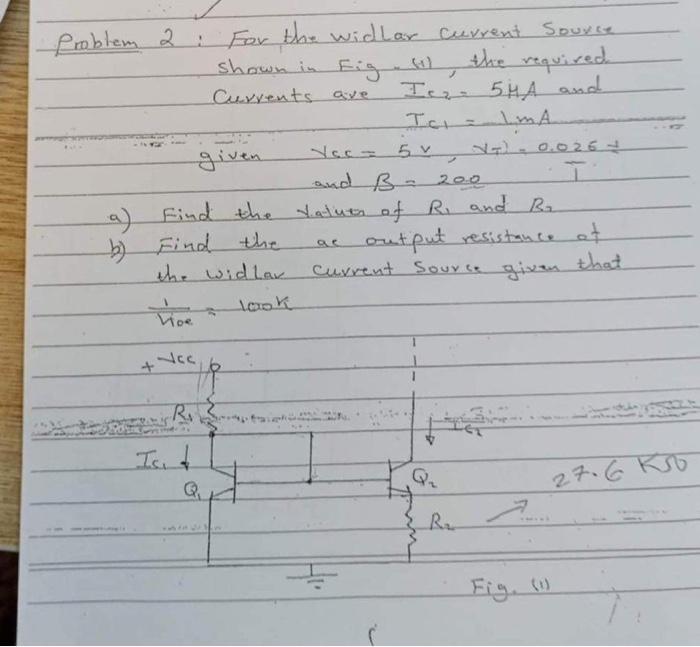 Problem 2 : For the widlar current Source
shown in Fig. (1), the required
Currents are Ic2 = 5μA and
Ic1 = 1mA
given Vcc = 5v, VT = 0.026
and β = 200
a) Find the Values of R1 and R2
b) Find the ac output resistance of
the widlar current Source given that
1/hoe = 100K
+Vcc
R1
Ic2
Ic1
Q1
Q2
27.6 KΩ
R2
Fig. (1)